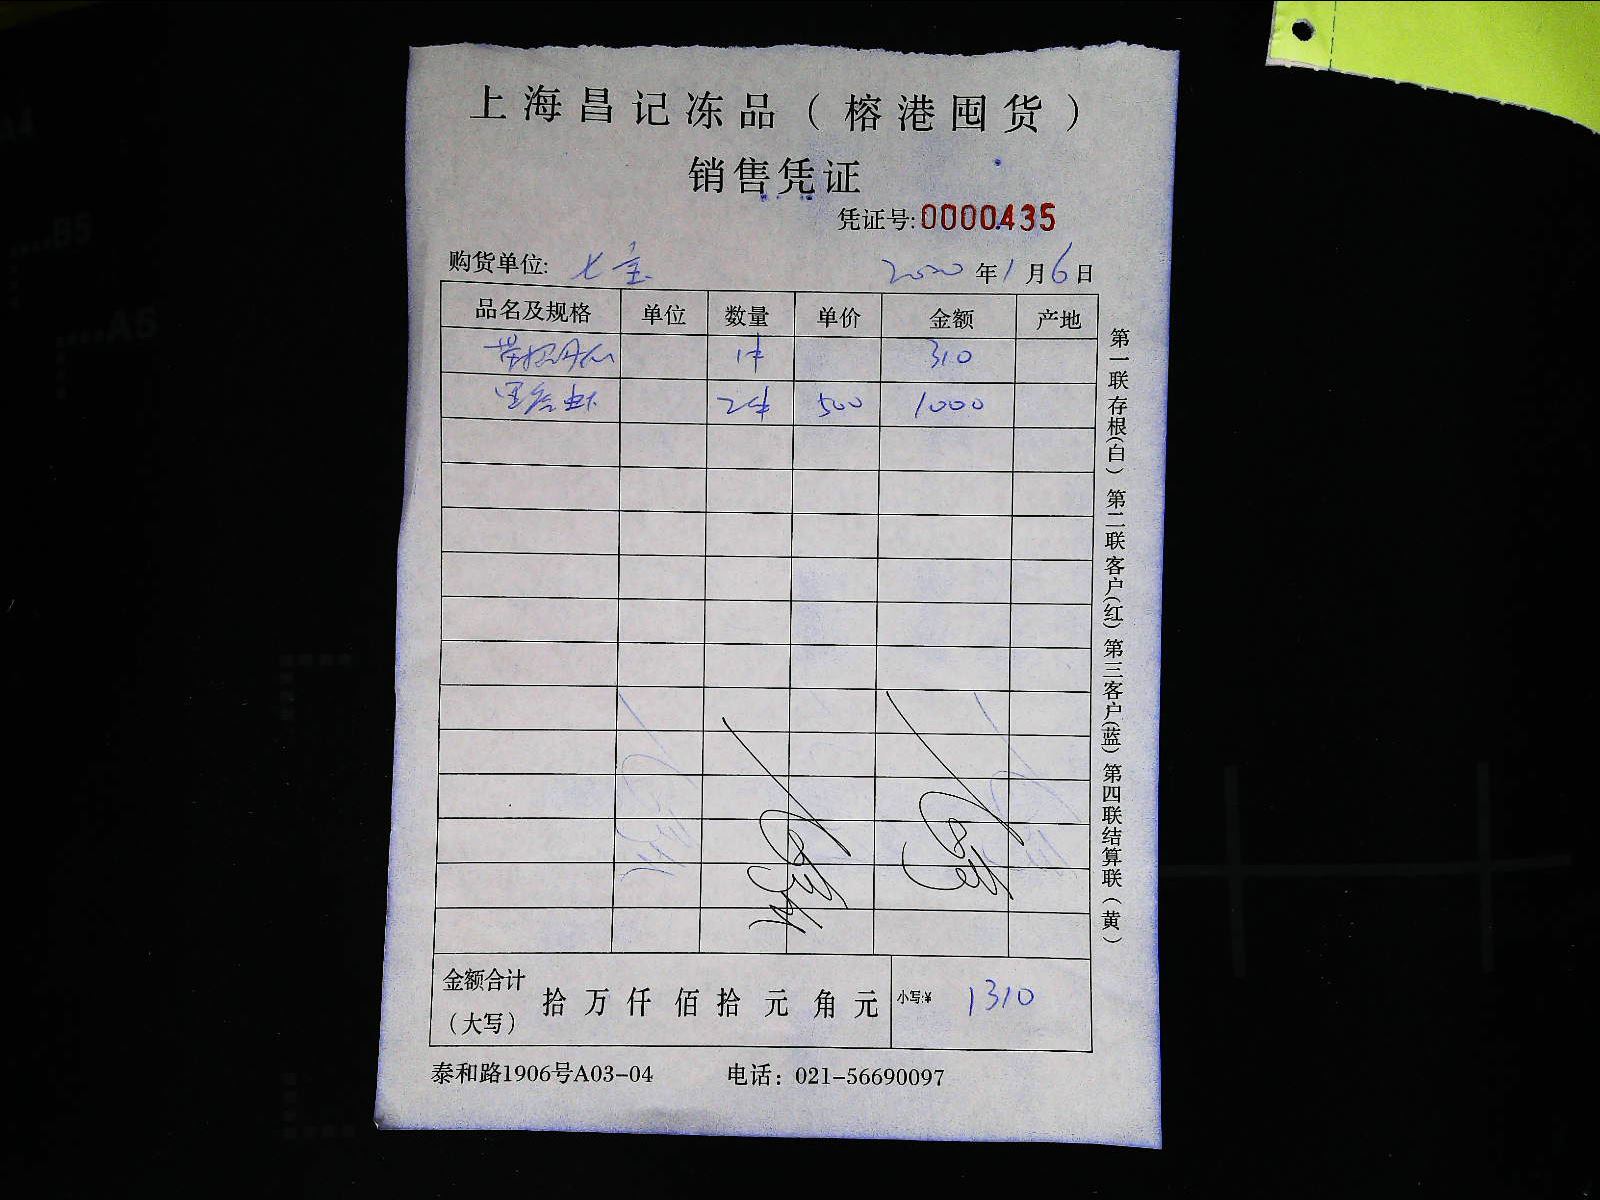 上海昌记冻品（榕港囤货）
销售凭证
凭证号:0000435
购货单位: 七宝 2020年1月6日
品名及规格 单位 数量 单价 金额 产地
1件 310
虾 2件 500 1000
金额合计（大写） 拾 万 仟 佰 拾 元 角 元 小写:¥ 1310
泰和路1906号A03-04 电话：021-56690097
第一联存根(白) 第二联客户(红) 第三客户(蓝) 第四联结算联（黄）
A4
B5
A5